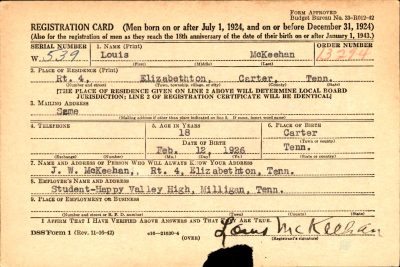 FORM APPROVED
Budget Bureau No. 33-R012-42
REGISTRATION CARD (Men born on or after July 1, 1924, and on or before December 31, 1924)
(Also for the registration of men as they reach the 18th anniversary of the date of their birth on or after January 1, 1943.)
SERIAL NUMBER
1. NAME (Print)
ORDER NUMBER
W 539
Louis McKeehan
(First) (Middle) (Last)
2. PLACE OF RESIDENCE (Print)
Rt. 4, Elizabethton, Carter, Tenn.
(Number and street) (Town, township, village, or city) (County) (State)
[THE PLACE OF RESIDENCE GIVEN ON LINE 2 ABOVE WILL DETERMINE LOCAL BOARD
JURISDICTION; LINE 2 OF REGISTRATION CERTIFICATE WILL BE IDENTICAL]
3. MAILING ADDRESS
Same
(Mailing address if other than place indicated on line 2. If same, insert word same)
4. TELEPHONE
5. AGE IN YEARS
6. PLACE OF BIRTH
18
Carter
DATE OF BIRTH
(Town or county)
Feb. 12, 1926
Tenn.
(Exchange) (Number)
(Mo.) (Day) (Yr.)
(State or country)
7. NAME AND ADDRESS OF PERSON WHO WILL ALWAYS KNOW YOUR ADDRESS
J. W. McKeehan, Rt. 4, Elizabethton, Tenn.
8. EMPLOYER'S NAME AND ADDRESS
Student-Happy Valley High, Milligan, Tenn.
9. PLACE OF EMPLOYMENT OR BUSINESS
(Number and street or R. F. D. number) (Town) (County) (State)
I AFFIRM THAT I HAVE VERIFIED ABOVE ANSWERS AND THAT THEY ARE TRUE.
DSS Form 1 (Rev. 11-16-42)
16-21630-4
(OVER)
Louis McKeehan
(Registrant's signature)